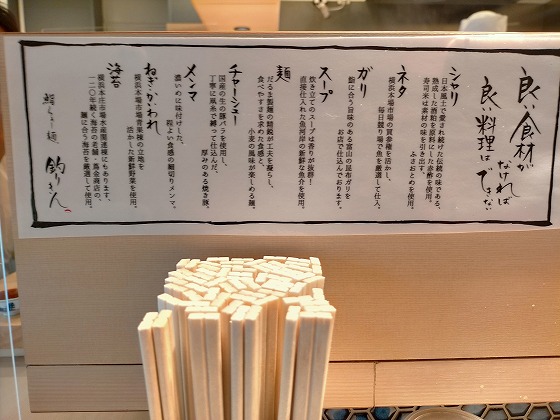 良い食材が
なければ
良い料理は
できない
シャリ
日本風土で愛され続けた伝統の味である、
熟成した酒粕を原料にした赤酢を使用。
寿司米は素材の味を引き立てるふさおとめを使用。
ネタ
横浜本場市場の買参権を活かし、
毎日競り場で魚を厳選して仕入。
ガリ
鮨に合う旨味のある富山の昆布ガリを
お店で仕込んでおります。
スープ
炊き立てのスープは香りが抜群!
直接仕入れた魚河岸の新鮮な魚介を使用。
麺
だるま製麺の精鋭が工夫を凝らし、
食べやすさを求めた食感と、
小麦の風味が楽しめる麺。
チャーシュー
国産の生の豚バラを使用、
丁寧に凧糸で縛って仕込んだ、
厚みのある焼き豚。
メンマ
濃いめに味付けした、食感の極細切りメンマ。
ねぎ・かいわれ
横浜本場市場青果棟の立地を
活かした新鮮野菜を使用。
海苔
横浜本庄市場水産関連棟にもあります、
一二〇年続く海苔の老舗・髙金商店の、
麺に合う海苔を厳選して使用。
鮨らー麺 釣りきん